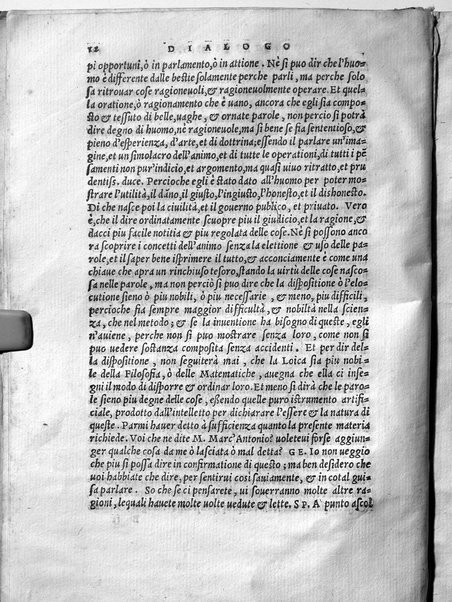 12 DIALOGO
pi opportuni, ò in parlamento, ò in attione. Nè si puo dir che l'huo-
mo è differente dalle bestie solamente perche parli, ma perche solo
sa ritrouar cose ragioneuoli, & ragioneuolmente operare. Et quel-
la oratione, ò ragionamento che è uano, ancora che egli sia compo-
sto & tessuto di belle, uaghe, & ornate parole, non percio si potrà
dire degno di huomo, nè ragioneuole, ma si bene se fia sententioso, &
pieno d'esperienza, d'arte, et di dottrina; essendo il parlare un'ima-
gine, et un simolacro dell'animo, et di tutte le operationi, di tutti i pē
samenti non pur'indicio, et argomento, ma quasi uiuo ritratto, et
prudentiss. duce. Percioche egli è stato dato all'huomo per poter mo-
strare l'utilità, il dāno, il giusto, l'ingiusto, l'honesto, et il dishonesto.
Di che nasce poi la ciuiltà, et il gouerno publico, et priuato. Vero
è, che il dire ordinatamente scuopre piu il giudicio, et la ragione, &
dacci piu facile notitia & piu regolata delle cose. Nè si possono anco
ra scoprire i concetti dell'animo senza la elettione & uso delle pa-
role, et il saper bene isprimere il tutto, & acconciamente è come una
chiaue che apra un rinchiuso tesoro, stando la uirtù delle cose nasco-
sa nelle parole, ma non perciò si puo dire che la dispositione ò l'elo-
cutione sieno ò piu nobili, ò piu necessarie, & meno, piu difficili,
percioche fia sempre maggior difficultà, & nobiltà nella scien-
za, che nel metodo; & se la inuentione ha bisogno di queste, egli
n'auiene, perche non si puo mostrare senza loro, come non si
puo uedere sostanza composita senza accidenti. Et per dir del-
la dispositione, non seguiterà mai, che la Loica sia piu nobi-
le della Filosofia, ò delle Matematiche, auegna che ella ci inse-
gni il modo di disporre & ordinar loro. Et meno si dirà che le paro-
le sieno piu degne delle cose, essendo quelle puro istrumento artifi-
ciale, prodotto dall'intelletto per dichiarare l'essere & la natura di
queste. Parmi hauer detto à sufficienza quanto la presente materia
richiede. Voi che ne dite M. Marc'Antonio? uoletevi forse aggiun-
ger qualche cosa da me ò lasciata ò mal detta? GE. Io non ueggio
che piu si possa dire in confirmatione di questo; ma ben desidero che
uoi habbiate che dire, per sentirui cosi sauiamente, & in cotal gui-
sa parlare. So che se ci pensarete, ui souerranno molte altre ra-
gioni, lequali hauete molte uolte uedute & lette. SP. A' punto ascol